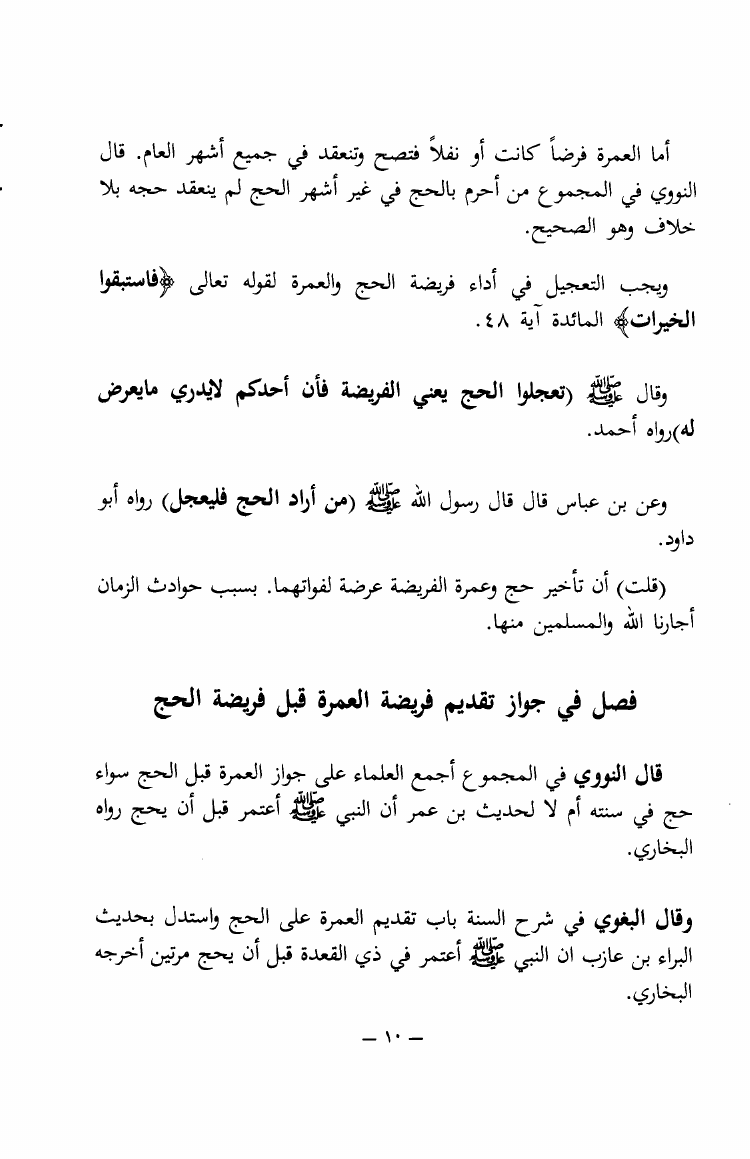 أما العمرة فرضاً كانت أو نفلاً فتصح وتنعقد في جميع أشهر العام. قال
النووي في المجموع من أحرم بالحج في غير أشهر الحج لم ينعقد حجه بلا
خلاف وهو الصحيح.
ويجب التعجيل في أداء فريضة الحج والعمرة لقوله تعالى ﴿فاستبقوا
الخيرات﴾ المائدة آية ٤٨.
وقال ﷺ (تعجلوا الحج يعني الفريضة فأن أحدكم لايدري مايعرض
له)رواه أحمد.
وعن بن عباس قال قال رسول الله ﷺ (من أراد الحج فليعجل) رواه أبو
داود.
(قلت) أن تأخير حج وعمرة الفريضة عرضة لفواتهما. بسبب حوادث الزمان
أجارنا الله والمسلمين منها.
فصل في جواز تقديم فريضة العمرة قبل فريضة الحج
قال النووي في المجموع أجمع العلماء على جواز العمرة قبل الحج سواء
حج في سنته أم لا لحديث بن عمر أن النبي ﷺ أعتمر قبل أن يحج رواه
البخاري.
وقال البغوي في شرح السنة باب تقديم العمرة على الحج واستدل بحديث
البراء بن عازب ان النبي ﷺ أعتمر في ذي القعدة قبل أن يحج مرتين أخرجه
البخاري.
— ١٠ —